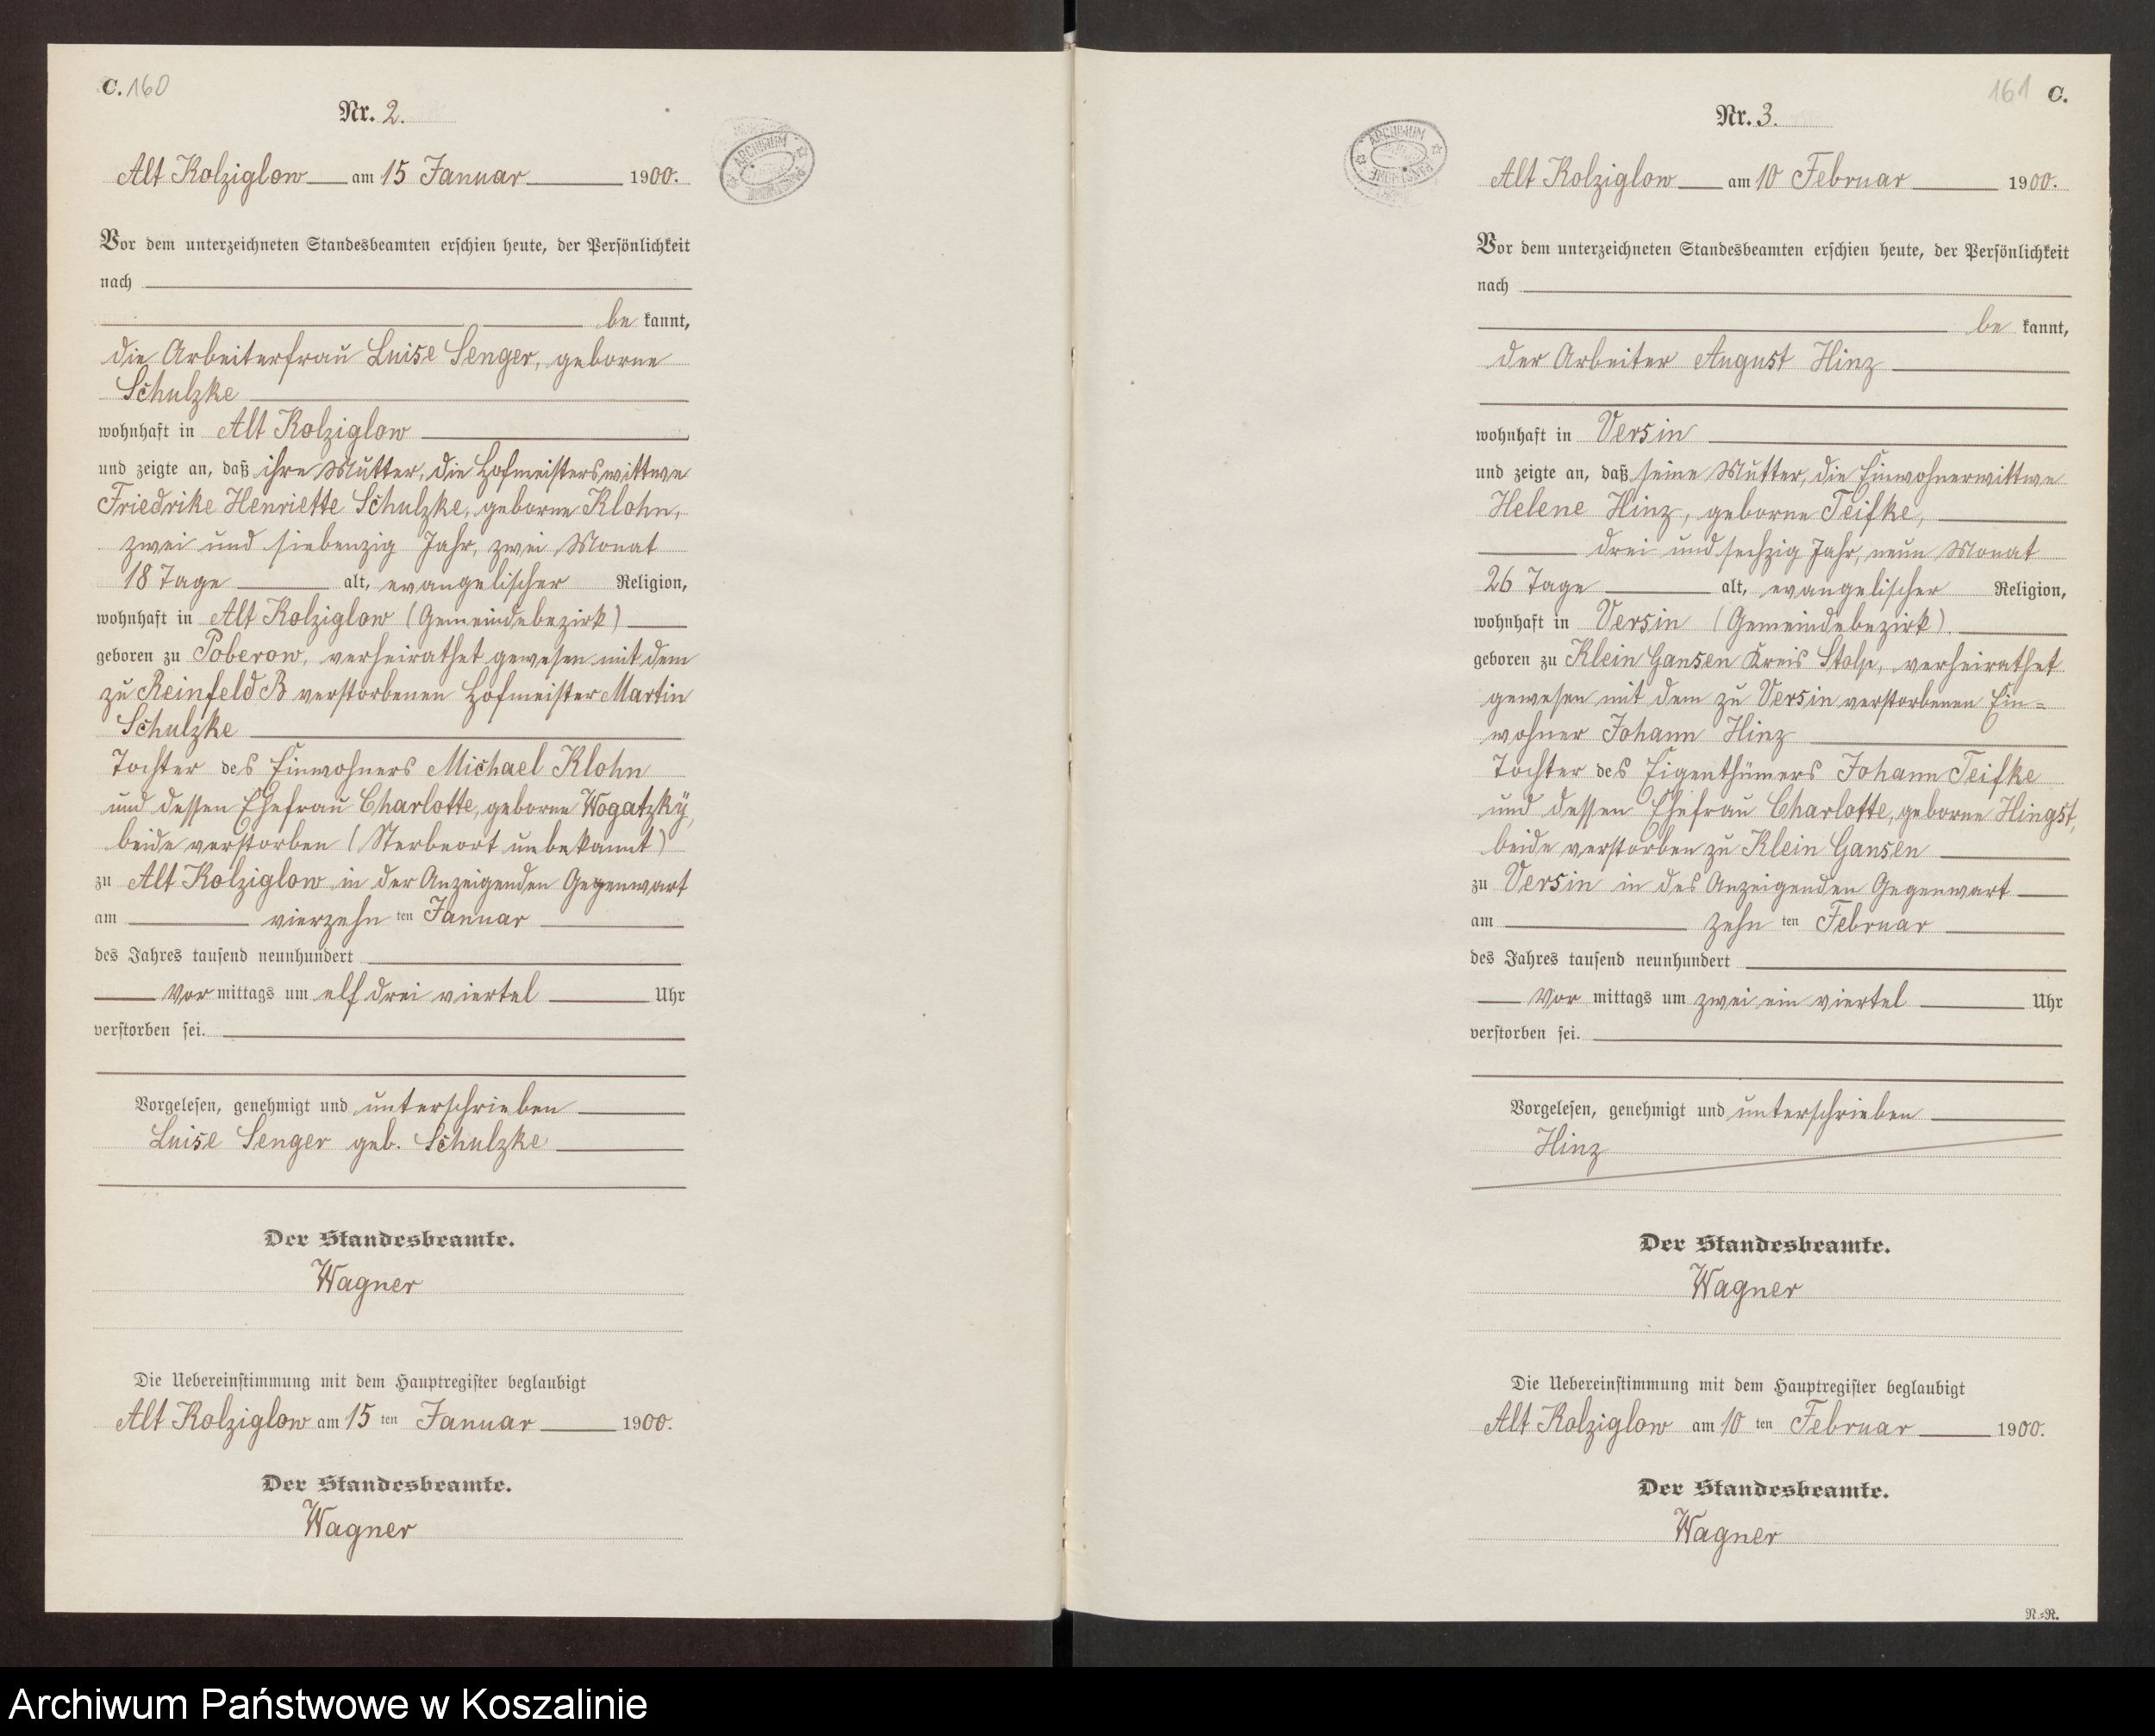 C. 160
Nr. 2.
Alt Kolziglow am 15 Januar 1900.
Vor dem unterzeichneten Standesbeamten erschien heute, der Persönlichkeit
nach
be kannt,
die Arbeiterfrau Luise Senger, geborne
Schulzke
wohnhaft in Alt Kolziglow
und zeigte an, daß ihre Mutter, die Hofmeisterswittwe
Friedrike Henriette Schulzke, geborne Klohn,
zwei und siebenzig Jahr, zwei Monat
18 Tage alt, evangelischer Religion,
wohnhaft in Alt Kolziglow (Gemeindebezirk)
geboren zu Poberow, verheirathet gewesen mit dem
zu Reinfeld B verstorbenen Hofmeister Martin
Schulzke
Tochter des Einwohners Michael Klohn
und dessen Ehefrau Charlotte, geborne Wogatzky,
beide verstorben (Sterbeort unbekannt)
zu Alt Kolziglow in der Anzeigenden Gegenwart
am vierzehn ten Januar
des Jahres tausend neunhundert
Vor mittags um elf drei viertel Uhr
verstorben sei.
Vorgelesen, genehmigt und unterschrieben
Luise Senger geb. Schulzke
Der Standesbeamte.
Wagner
Die Uebereinstimmung mit dem Hauptregister beglaubigt
Alt Kolziglow am 15 ten Januar 1900.
Der Standesbeamte.
Wagner
ARCHIWUM
161 C.
Nr. 3.
Alt Kolziglow am 10 Februar 1900.
Vor dem unterzeichneten Standesbeamten erschien heute, der Persönlichkeit
nach
be kannt,
der Arbeiter August Hinz
wohnhaft in Versin
und zeigte an, daß seine Mutter, die Einwohnerwittwe
Helene Hinz, geborne Teifke,
drei und sechzig Jahr, neun Monat
26 Tage alt, evangelischer Religion,
wohnhaft in Versin (Gemeindebezirk)
geboren zu Klein Gansen Kreis Stolp, verheirathet
gewesen mit dem zu Versin verstorbenen Ein=
wohner Johann Hinz
Tochter des Eigenthümers Johann Teifke
und dessen Ehefrau Charlotte, geborne Hingst,
beide verstorben zu Klein Gansen
zu Versin in des Anzeigenden Gegenwart
am zehn ten Februar
des Jahres tausend neunhundert
Vor mittags um zwei ein viertel Uhr
verstorben sei.
Vorgelesen, genehmigt und unterschrieben
Hinz
Der Standesbeamte.
Wagner
Die Uebereinstimmung mit dem Hauptregister beglaubigt
Alt Kolziglow am 10 ten Februar 1900.
Der Standesbeamte.
Wagner
N.=R.
ARCHIWUM
Archiwum Państwowe w Koszalinie